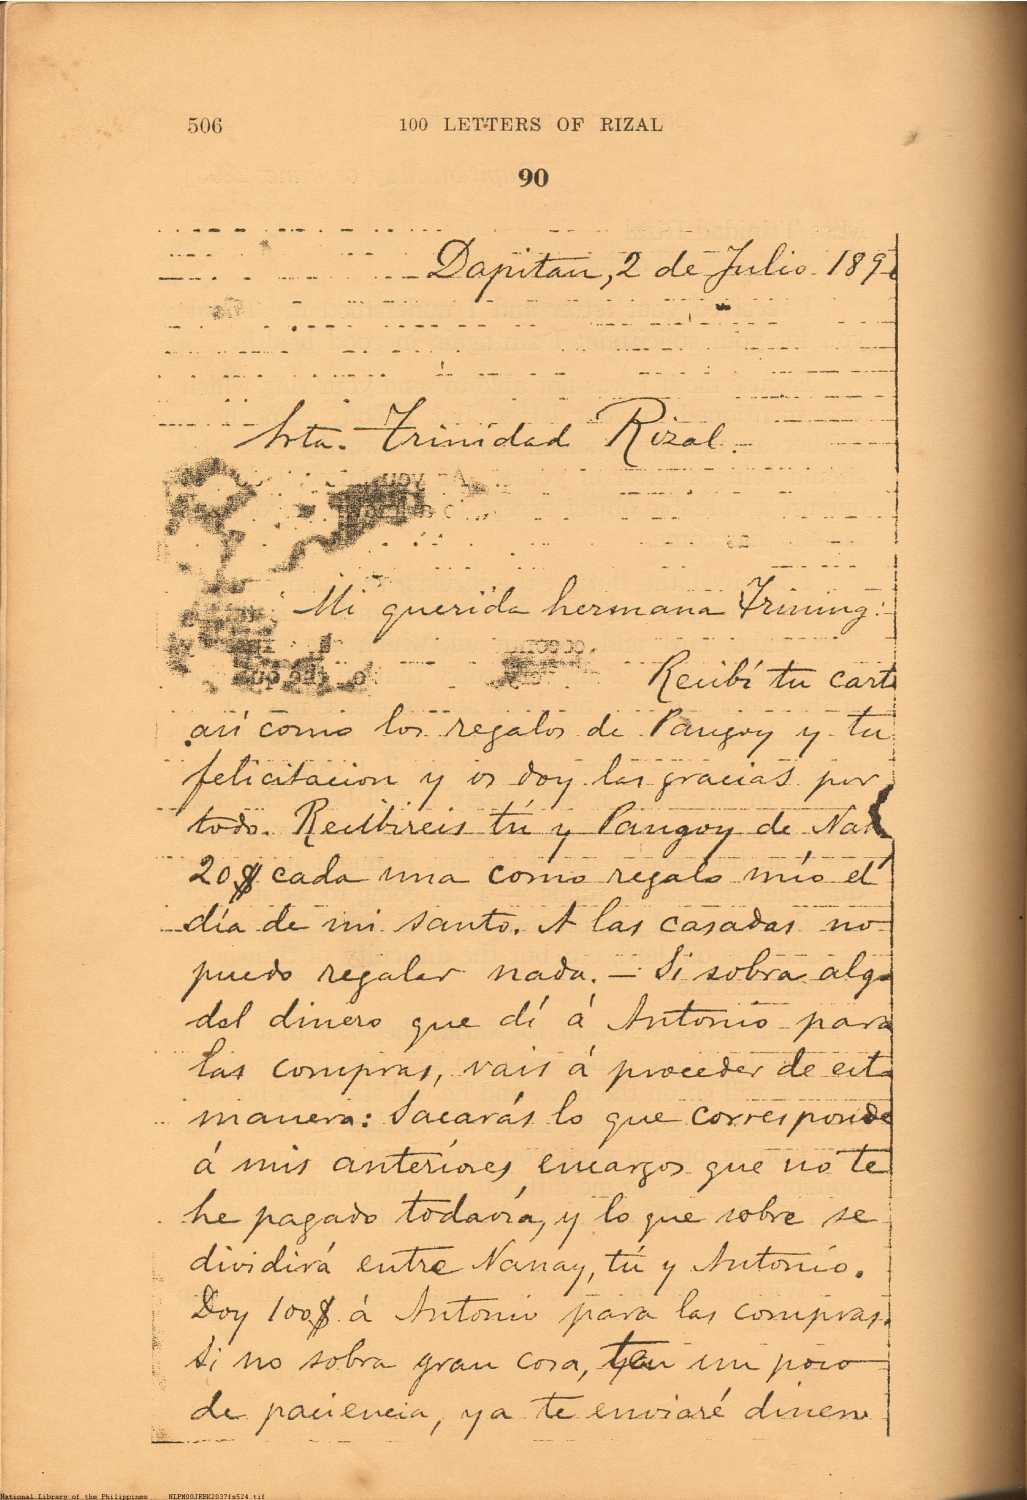 506
100 LETTERS OF RIZAL
90
Dapitan, 2 de Julio 189
Srta. Trinidad Rizal.
Mi querida hermana Trining:
Recibí tu carta
así como los regalos de Pangoy y tu
felicitacion y os doy las gracias por
todo. Recibireis tú y Pangoy de Nar
20$ cada una como regalo mío el
día de mi santo. A las casadas no
puedo regalar nada. — Si sobra algo
del dinero que dí á Antonio para
las compras, vais á proceder de esta
manera: Sacarás lo que corresponde
á mis anteriores encargos que no te
he pagado todavía, y lo que sobre se
dividirá entre Nanay, tú y Antonio.
Doy 100$ á Antonio para las compras.
Si no sobra gran cosa, ten un poco
de paciencia, ya te enviaré dinero
National Library of the Philippines NLPM00JRBK2037fs524.tif